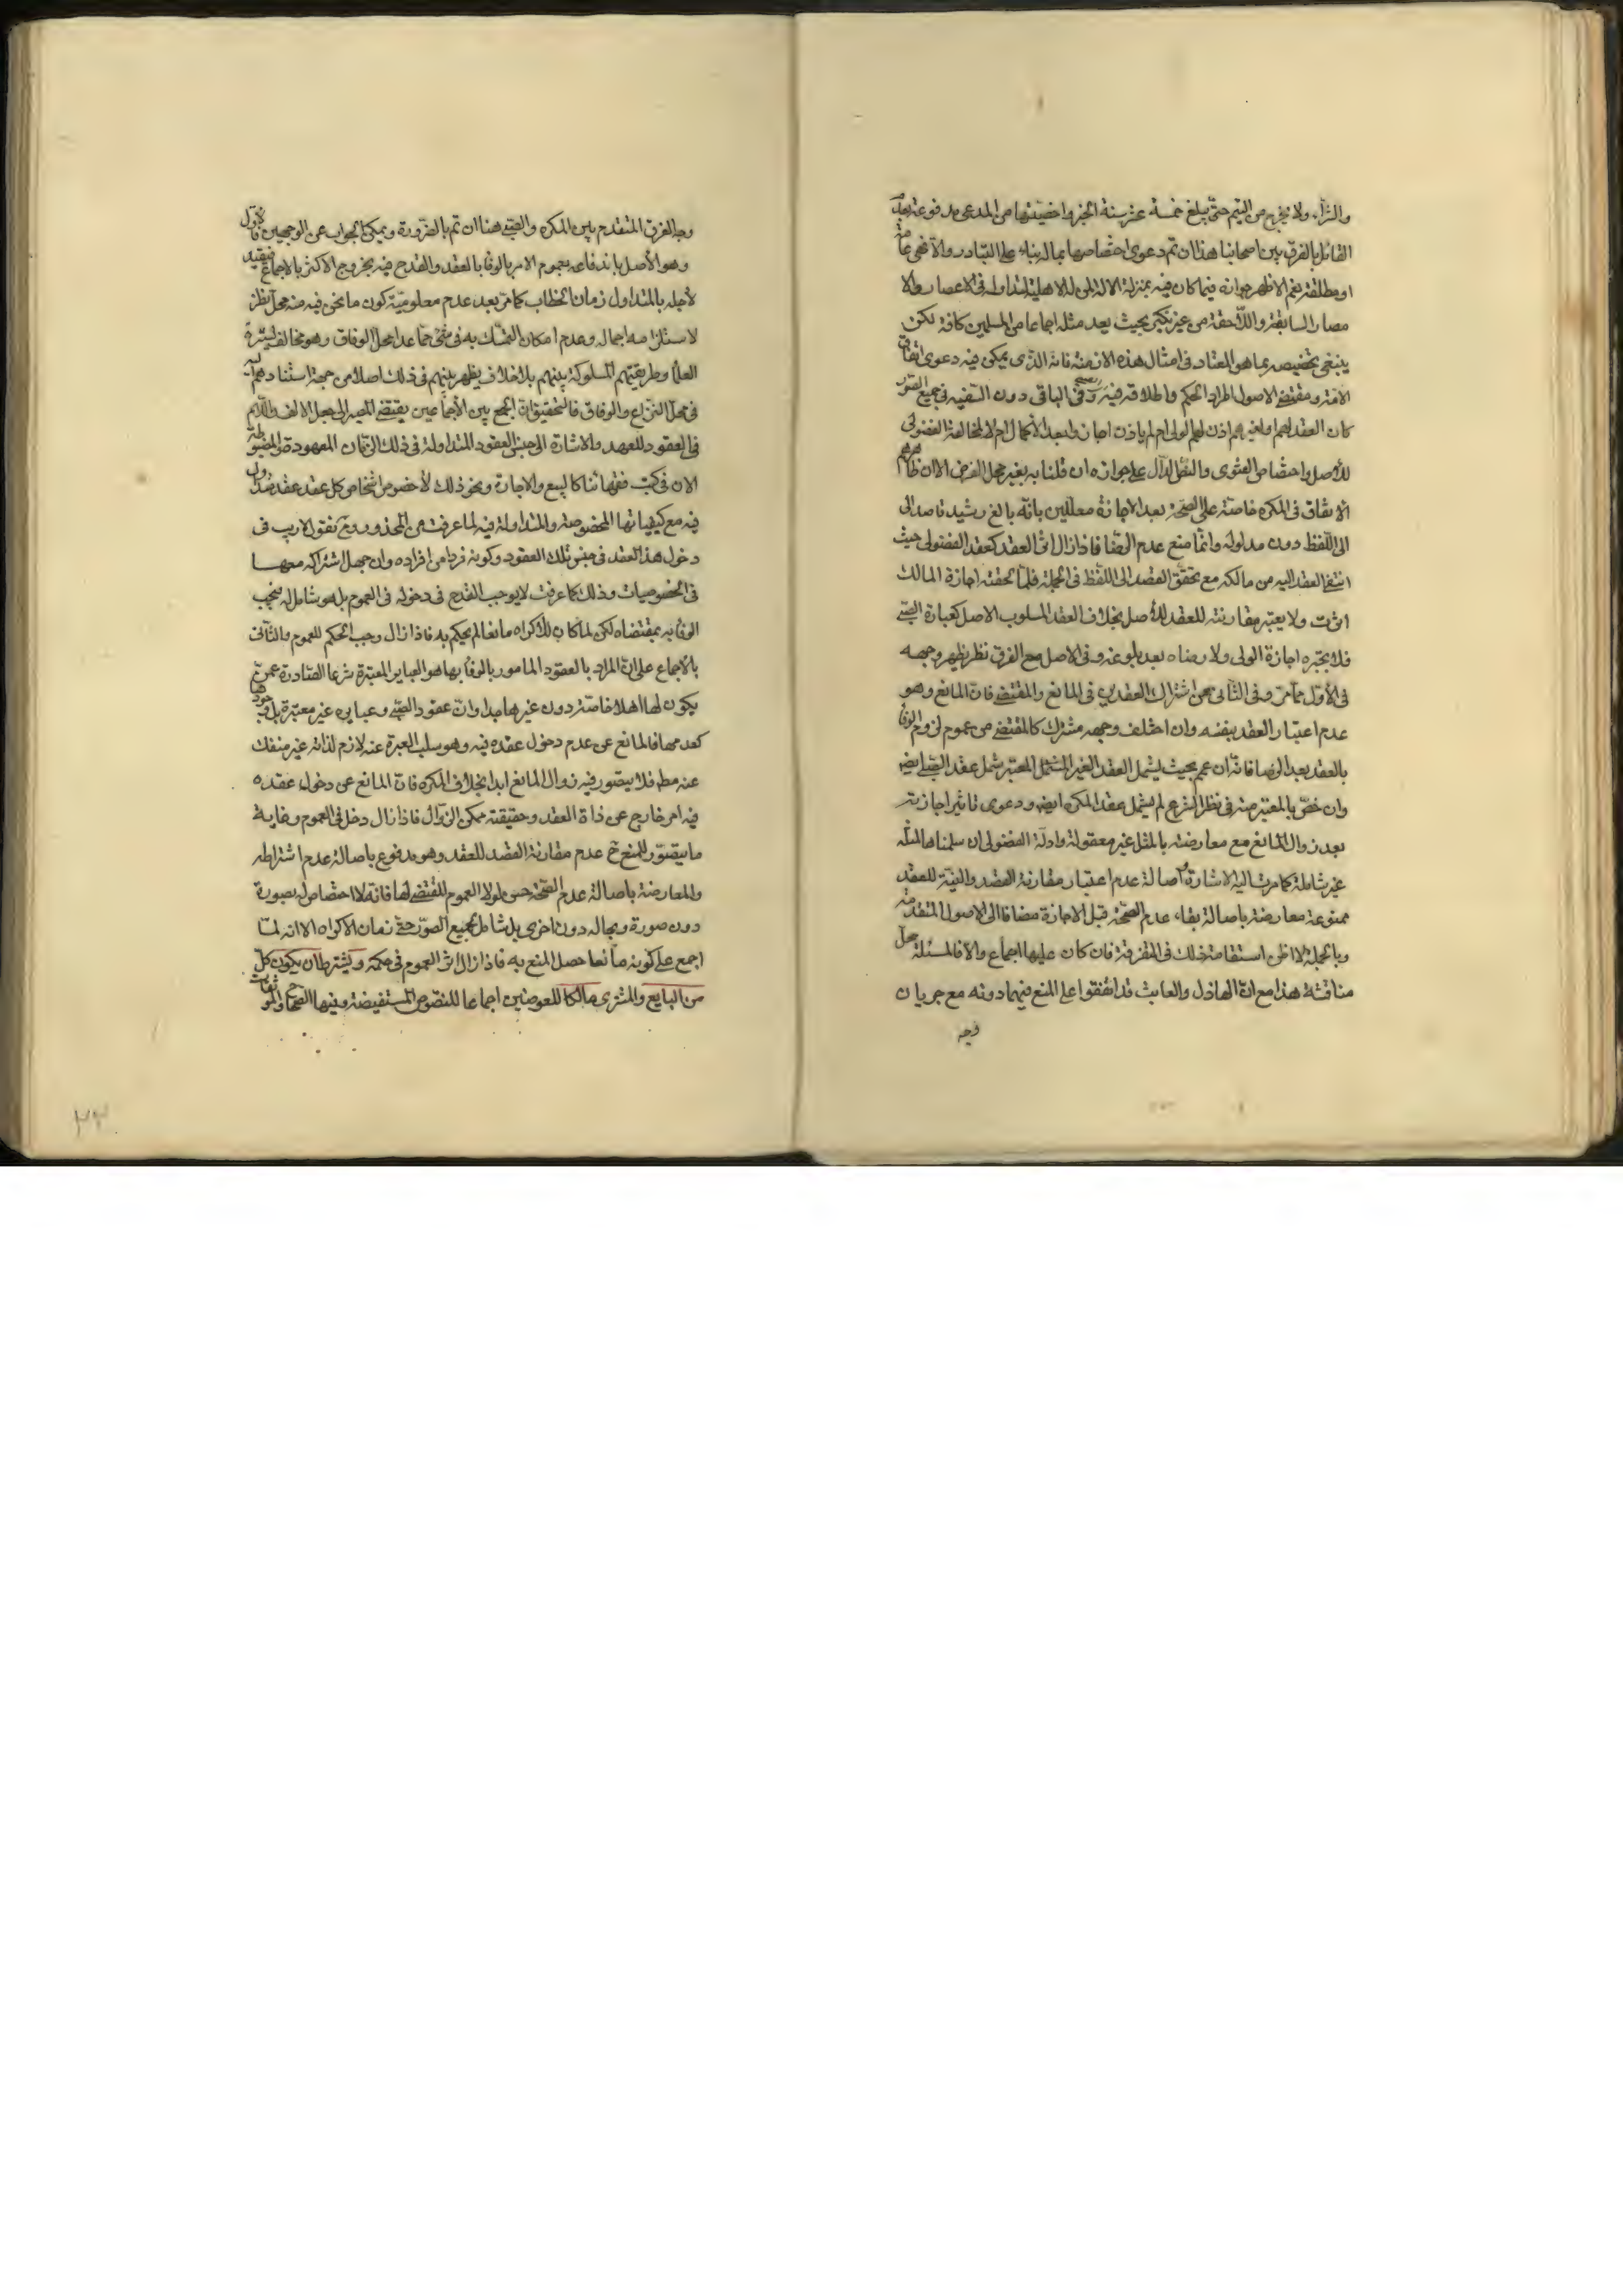 والشراء ولا يخرج من اليتم حتى يبلغ خمسة عشر سنة الخبر واخصيتها من المدعى مدفوعة بعدم
القائل بالفرق بين اصحابنا هذا ان تم دعوى اختصاصها بماله بناء على التبادر والا فهى عامة
او مطلقة نعم الاظهر جوازه فيما كان فيه بمنزلة الالة لمن له الاهلية لتداوله فى الاعصار والا
مصار السابقة واللاحقة من غير نكير بحيث يعد مثله اجماعا من المسلمين كافة لكن
ينبغى تخصيصه بما هو المعتاد فى امثال هذه الازمنة فانه الذى يمكن فيه دعوى اتفاق
الامة ومقتضى الاصول اطراد الحكم واطلاقه فيه وفى الباقى دون السفيه فى جميع الصور
كان العقد لهم او لغيرهم اذن لهم الولى ام لم ياذن اجاز والبعد الاكمال ام لا لمخالفة الفضولى
للاصل واختصاص الفتوى والنص الدال على جوازه ان قلنا به بغير محل الفرض الا ان ظاهرهم
الاتفاق فى المكره خاصة على الصحة بعد الاجازة معللين بانه بالغ رشيد قاصد الى
الى اللفظ دون مدلوله وانما منع عدم الرضا فاذا زال اثر العقد كعقد الفضولى حيث
انتفى العقد اليه من مالكه مع تحقق القصد الى اللفظ فى الجملة فلما لحقته اجازة المالك
اثرت ولا يعتبر مقارنته للعقد للاصل بخلاف العقد المسلوب الاصل كعبارة الصبى
فلا يجبره اجازة الولى ولا رضاه بعد بلوغه وفى الاصل مع الفرق نظر يظهر وجهه
فى الاول مما مر وفى الثانى من اشتراك العقدين فى المانع والمقتضى فان المانع وهو
عدم اعتبار العقد بنفسه وان اختلف وجهه مشترك كالمقتضى من عموم لزوم الوفا
بالعقد بعد الرضا فانه ان عمم بحيث يشمل العقد الغير المشتمل المعتبر شمل عقد الصبى ايضا
وان خص بالمعتبر منه فى نظر الشرع لم يشمل عقد المكره ايضا ودعوى تاثير اجازته
بعد زوال المانع مع معارضته بالمثل غير معقولة وادلة الفضولى ان سلمناها لمثله
غير شاملة كما مرت اليه الاشارة واصالة عدم اعتبار مقارنة القصد والنية للعقد
ممنوعة معارضة باصالة بقاء عدم الصحة قبل الاجازة مضافا الى الاصول المتقدمة
وبالجملة لا اظن استقامة ذلك فى التفرقة فان كان عليها اجماع والا فالمسئلة محل
مناقشة هذا مع ان الهازل والعابث قد اتفقوا على المنع فيهما دونه مع جريان
وجه
وجه الفرق المتقدم بين المكره والصبى هنا ان تم بالضرورة ويمكن الجواب عن الوجهين فالاول
وهو الاصل باندفاعه بعموم الامر بالوفا بالعقد والقدح فيه بخروج الاكثر بالاجماع فيقيد
لاجله بالمتداول زمان الخطاب كما مر بعد عدم معلومية كون ما نحن فيه منه محل نظر
لاستلزامه اجماله وعدم امكان التمسك به فى شئ مما عدا محل الوفاق وهو مخالف لسيرة
العلما وطريقتهم المسلوكة بينهم بلا خلاف يظهر بينهم فى ذلك اصلا من جهة استنادهم اليه
فى محل النزاع والوفاق فالتحقيق ان الجمع بين الاجماعين يقتضى المصير الى جعل الالف واللام
فى العقود للعهد والاشارة الى جنس العقود المتداولة فى ذلك الزمان المعهودة المضبوطة
الان فى كتب فقهائنا كالبيع والاجارة ونحو ذلك لا خصوص اشخاص كل عقد عقد متداول
فيه مع كيفياتها المخصوصة والمتداولة فيه لما عرفت من المحذور وح نقول لا ريب فى
دخول هذا العقد فى جنس تلك العقود وكونه فردا من افراده وان جهل اشتراكه معها
فى الخصوصيات وذلك كما عرفت لا يوجب القدح فى دخوله فى العموم بل هو شامل له فيجب
الوفا به بمقتضاه لكن لما كان الاكراه مانعا لم يحكم به فاذا زال وجب الحكم للعموم والثانى
بالاجماع على ان المراد بالعقود المامور بالوفا بها هو العباير المعتبرة شرعا الصادرة عمن
يكون لها اهلا خاصة دون غيرها جدا وان عقود الصبى وعبايره غير معتبرة بل وجودها
كعدمها فالمانع عن عدم دخول عقده فيه وهو سلب العبرة عنه لازم لذاته غير منفك
عنه مط فلا يتصور فيه زوال المانع ابدا بخلاف المكره فان المانع عن دخول عقده
فيه امر خارج عن ذاة العقد وحقيقته ممكن الزوال فاذا زال دخل فى العموم وغاية
ما يتصور للمنع ح عدم مقارنة القصد للعقد وهو مدفوع باصالة عدم اشتراطه
والمعارضة باصالة عدم الصحة حسن لولا العموم المقتضى لها فانه لا اختصاص له بصورة
دون صورة وبحاله دون اخرى بل شامل لجميع الصور حتى زمان الاكراه الا انه لما
اجمع على كونه مانعا حصل المنع به فاذا زال اثر العموم فى حكمه ويشترط ان يكون كل
من البايع والمشترى مالكا للعوضين اجماعا للنصوص المستفيضة وفيها الصحاح والموثقات
٢٣